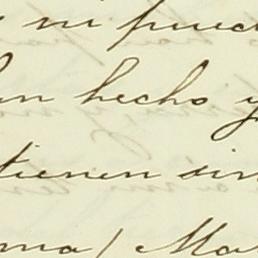 ni pued
hecho y
tienen sin
ma, Ma